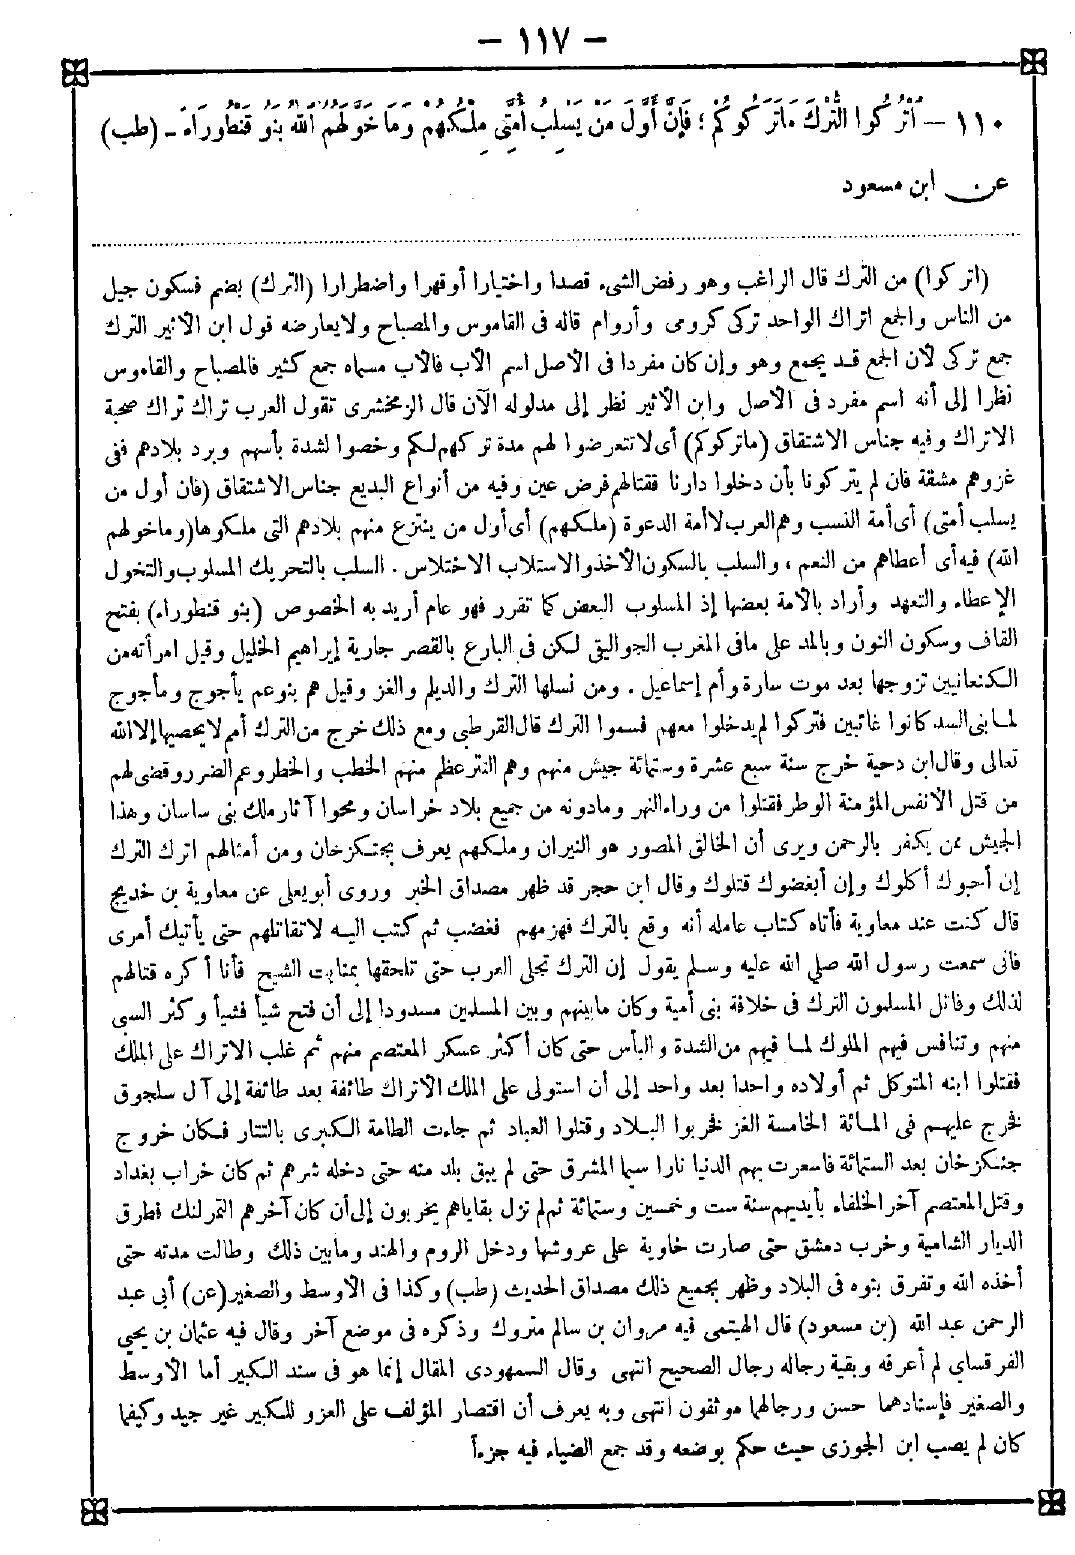 – ١١٧ –
١١٠ – اُتْرُكُوا التُّرْكَ مَاتَرَكُوكُمْ ؛ فَإِنَّ أَوَّلَ مَنْ يَسْلِبُ أُمَّتِى مِلْكَهُمْ وَمَا خَوَّلَهُمُ اللَّهُ بَنُو قَنْطُورَاءَ – (طب)
عن ابن مسعود
(اتركوا) من الترك قال الراغب وهو رفض الشىء قصدا واختيارا أوقهرا واضطرارا (الترك) بضم فسكون جيل
من الناس والجمع اتراك الواحد تركى كرومى وأروام قاله فى القاموس والمصباح ولايعارضه قول ابن الأثير الترك
جمع تركى لأن الجمع قد يجمع وهو وإن كان مفردا فى الأصل اسم الأب فالأب مسماه جمع كثير فالمصباح والقاموس
نظرا إلى أنه اسم مفرد فى الأصل وابن الأثير نظر إلى مدلوله الآن قال الزمخشرى تقول العرب تراك تراك صحبة
الاتراك وفيه جناس الاشتقاق (ماتركوكم) أى لاتتعرضوا لهم مدة تركهم لكم وخصوا لشدة بأسهم وبرد بلادهم ففى
غزوهم مشقة فان لم يتركونا بأن دخلوا دارنا فقتالهم فرض عين وفيه من أنواع البديع جناس الاشتقاق (فان أول من
يسلب أمتى) أى أمة النسب وهم العرب لاأمة الدعوة (ملكهم) أى أول من ينتزع منهم بلادهم التى ملكوها (وماخولهم
الله) فيه أى أعطاهم من النعم ، والسلب بالسكون الأخذ والاستلاب الاختلاس . السلب بالتحريك المسلوب والتخول
الإعطاء والتعهد وأراد بالأمة بعضها إذ المسلوب البعض كما تقرر فهو عام أريد به الخصوص (بنو قنطوراء) بفتح
القاف وسكون النون وبالمد على مافى المغرب الجواليقى لكن فى البارع بالقصر جارية إبراهيم الخليل وقيل امرأته من
الكنعانيين تزوجها بعد موت سارة وأم إسماعيل . ومن نسلها الترك والديلم والغز وقيل هم بنوعم يأجوج ومأجوج
لما بنى السد كانوا غائبين فتركوا لم يدخلوا معهم فسموا الترك قال القرطبى ومع ذلك خرج من الترك أمم لايحصيها إلا الله
تعالى وقال ابن دحية خرج سنة سبع عشرة وستمائة جيش منهم وهم التتر عظم منهم الخطب والخطر وعم الضرر وقضى لهم
من قتل الأنفس المؤمنة الوطر فقتلوا من وراء النهر ومادونه من جميع بلاد خراسان ومحوا آثار ملك بنى ساسان وهذا
الجيش ممن يكفر بالرحمن ويرى أن الخالق المصور هو النيران وملكهم يعرف بجنكزخان ومن أمثالهم اترك الترك
إن أحبوك أكلوك وإن أبغضوك قتلوك وقال ابن حجر قد ظهر مصداق الخبر وروى أبويعلى عن معاوية بن خديج
قال كنت عند معاوية فأتاه كتاب عامله أنه وقع بالترك فهزمهم فغضب ثم كتب اليه لاتقاتلهم حتى يأتيك أمرى
فانى سمعت رسول الله صلى الله عليه وسلم يقول إن الترك تجلى العرب حتى تلحقها بمنابت الشيح فأنا أكره قتالهم
لذلك وقاتل المسلمون الترك فى خلافة بنى أمية وكان مابينهم وبين المسلمين مسدودا إلى أن فتح شيأ فشيأ وكثر السبى
منهم وتنافس فيهم الملوك لما فيهم من الشدة والبأس حتى كان أكثر عسكر المعتصم منهم ثم غلب الاتراك على الملك
فقتلوا ابنه المتوكل ثم أولاده واحدا بعد واحد إلى أن استولى على الملك الاتراك طائفة بعد طائفة إلى آل سلجوق
فخرج عليهم فى المائة الخامسة الغز فخربوا البلاد وقتلوا العباد ثم جاءت الطامة الكبرى بالتتار فكان خروج
جنكزخان بعد الستمائة فاسعرت بهم الدنيا نارا سيما المشرق حتى لم يبق بلد منه حتى دخله شرهم ثم كان خراب بغداد
وقتل المعتصم آخر الخلفاء بأيديهم سنة ست وخمسين وستمائة ثم لم تزل بقاياهم يخربون إلى أن كان آخرهم التمرلنك فطرق
الديار الشامية وخرب دمشق حتى صارت خاوية على عروشها ودخل الروم والهند ومابين ذلك وطالت مدته حتى
أخذه الله وتفرق بنوه فى البلاد وظهر بجميع ذلك مصداق الحديث (طب) وكذا فى الأوسط والصغير (عن) أبى عبد
الرحمن عبد الله (بن مسعود) قال الهيتمى فيه مروان بن سالم متروك وذكره فى موضع آخر وقال فيه عثمان بن يحيى
الفرقساى لم أعرفه وبقية رجاله رجال الصحيح انتهى وقال السمهودى المقال إنما هو فى سند الكبير أما الأوسط
والصغير فإسنادهما حسن ورجالهما موثقون انتهى وبه يعرف أن اقتصار المؤلف على العزو للكبير غير جيد وكيفما
كان لم يصب ابن الجوزى حيث حكم بوضعه وقد جمع الضياء فيه جزءاً